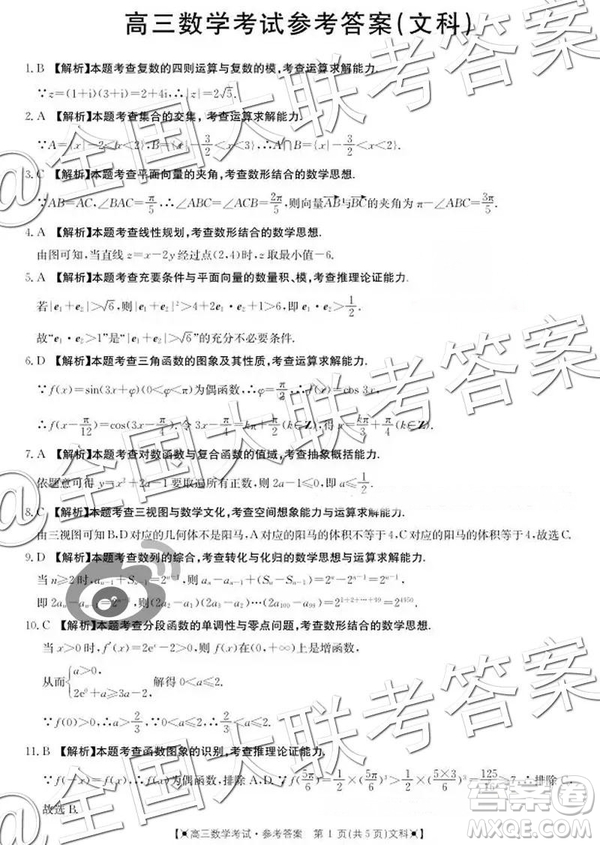 高三数学考试参考答案(文科)
1. B 【解析】本题考查复数的四则运算与复数的模,考查运算求解能力.
∵z=(1+i)(3+i)=2+4i,∴|z|=2√5.
2. A 【解析】本题考查集合的交集,考查运算求解能力.
∵A={x|-2<x<2},B={x|-3/2<x<3},∴A∩B={x|-3/2<x<2}.
3. C 【解析】本题考查平面向量的夹角,考查数形结合的数学思想.
∵AB=AC,∠BAC=π/5,∴∠ABC=∠ACB=2π/5,则向量AB与BC的夹角为π-∠ABC=3π/5.
4. A 【解析】本题考查线性规划,考查数形结合的数学思想.
由图可知,当直线z=x-2y经过点(2,4)时,z取最小值-6.
5. A 【解析】本题考查充要条件与平面向量的数量积、模,考查推理论证能力.
若|e₁+e₂|>√6,则|e₁+e₂|²>4+2e₁·e₂+1>6,即e₁·e₂>1/2.
故“e₁·e₂>1”是“|e₁+e₂|>√6”的充分不必要条件.
6. D 【解析】本题考查三角函数的图象及其性质,考查运算求解能力.
∵f(x)=sin(3x+φ)(0<φ<π)为偶函数,∴φ=π/2,∴f(x)=cos 3x,
∴f(x-π/12)=cos(3x-π/4).令3x-π/4=kπ+π/2(k∈Z),得x=kπ/3+π/4(k∈Z).
7. A 【解析】本题考查对数函数与复合函数的值域,考查抽象概括能力.
依题意可得y=x²+2a-1要取遍所有正数,则2a-1≤0,即a≤1/2.
8. C 【解析】本题考查三视图与数学文化,考查空间想象能力与运算求解能力.
由三视图可知B,D对应的几何体不是阳马,A对应的阳马的体积不等于4,C对应的阳马的体积等于4,故选C.
9. D 【解析】本题考查数列的综合,考查转化与化归的数学思想与运算求解能力.
当n≥2时,
10. C 【解析】本题考查分段函数的单调性与零点问题,考查数形结合的数学思想.
当x>0时,f′(x)=2eˣ-2>0,则f(x)在(0,+∞)上是增函数,
从而{a>0, 2e⁰+a≥3a-2, 解得0<a≤2.
∵f(0)<0,∴a>2/3,∴2/3<a≤2.
11. B 【解析】本题考查函数图象的识别,考查推理论证能力.
∵f(-x)=f(x),∴f(x)为偶函数,排除A,D.∵f(5π/6)
故选B.
【高三数学考试·参考答案 第1页(共5页)文科】
@全国大联考答案
答案圈
MXQE.COM